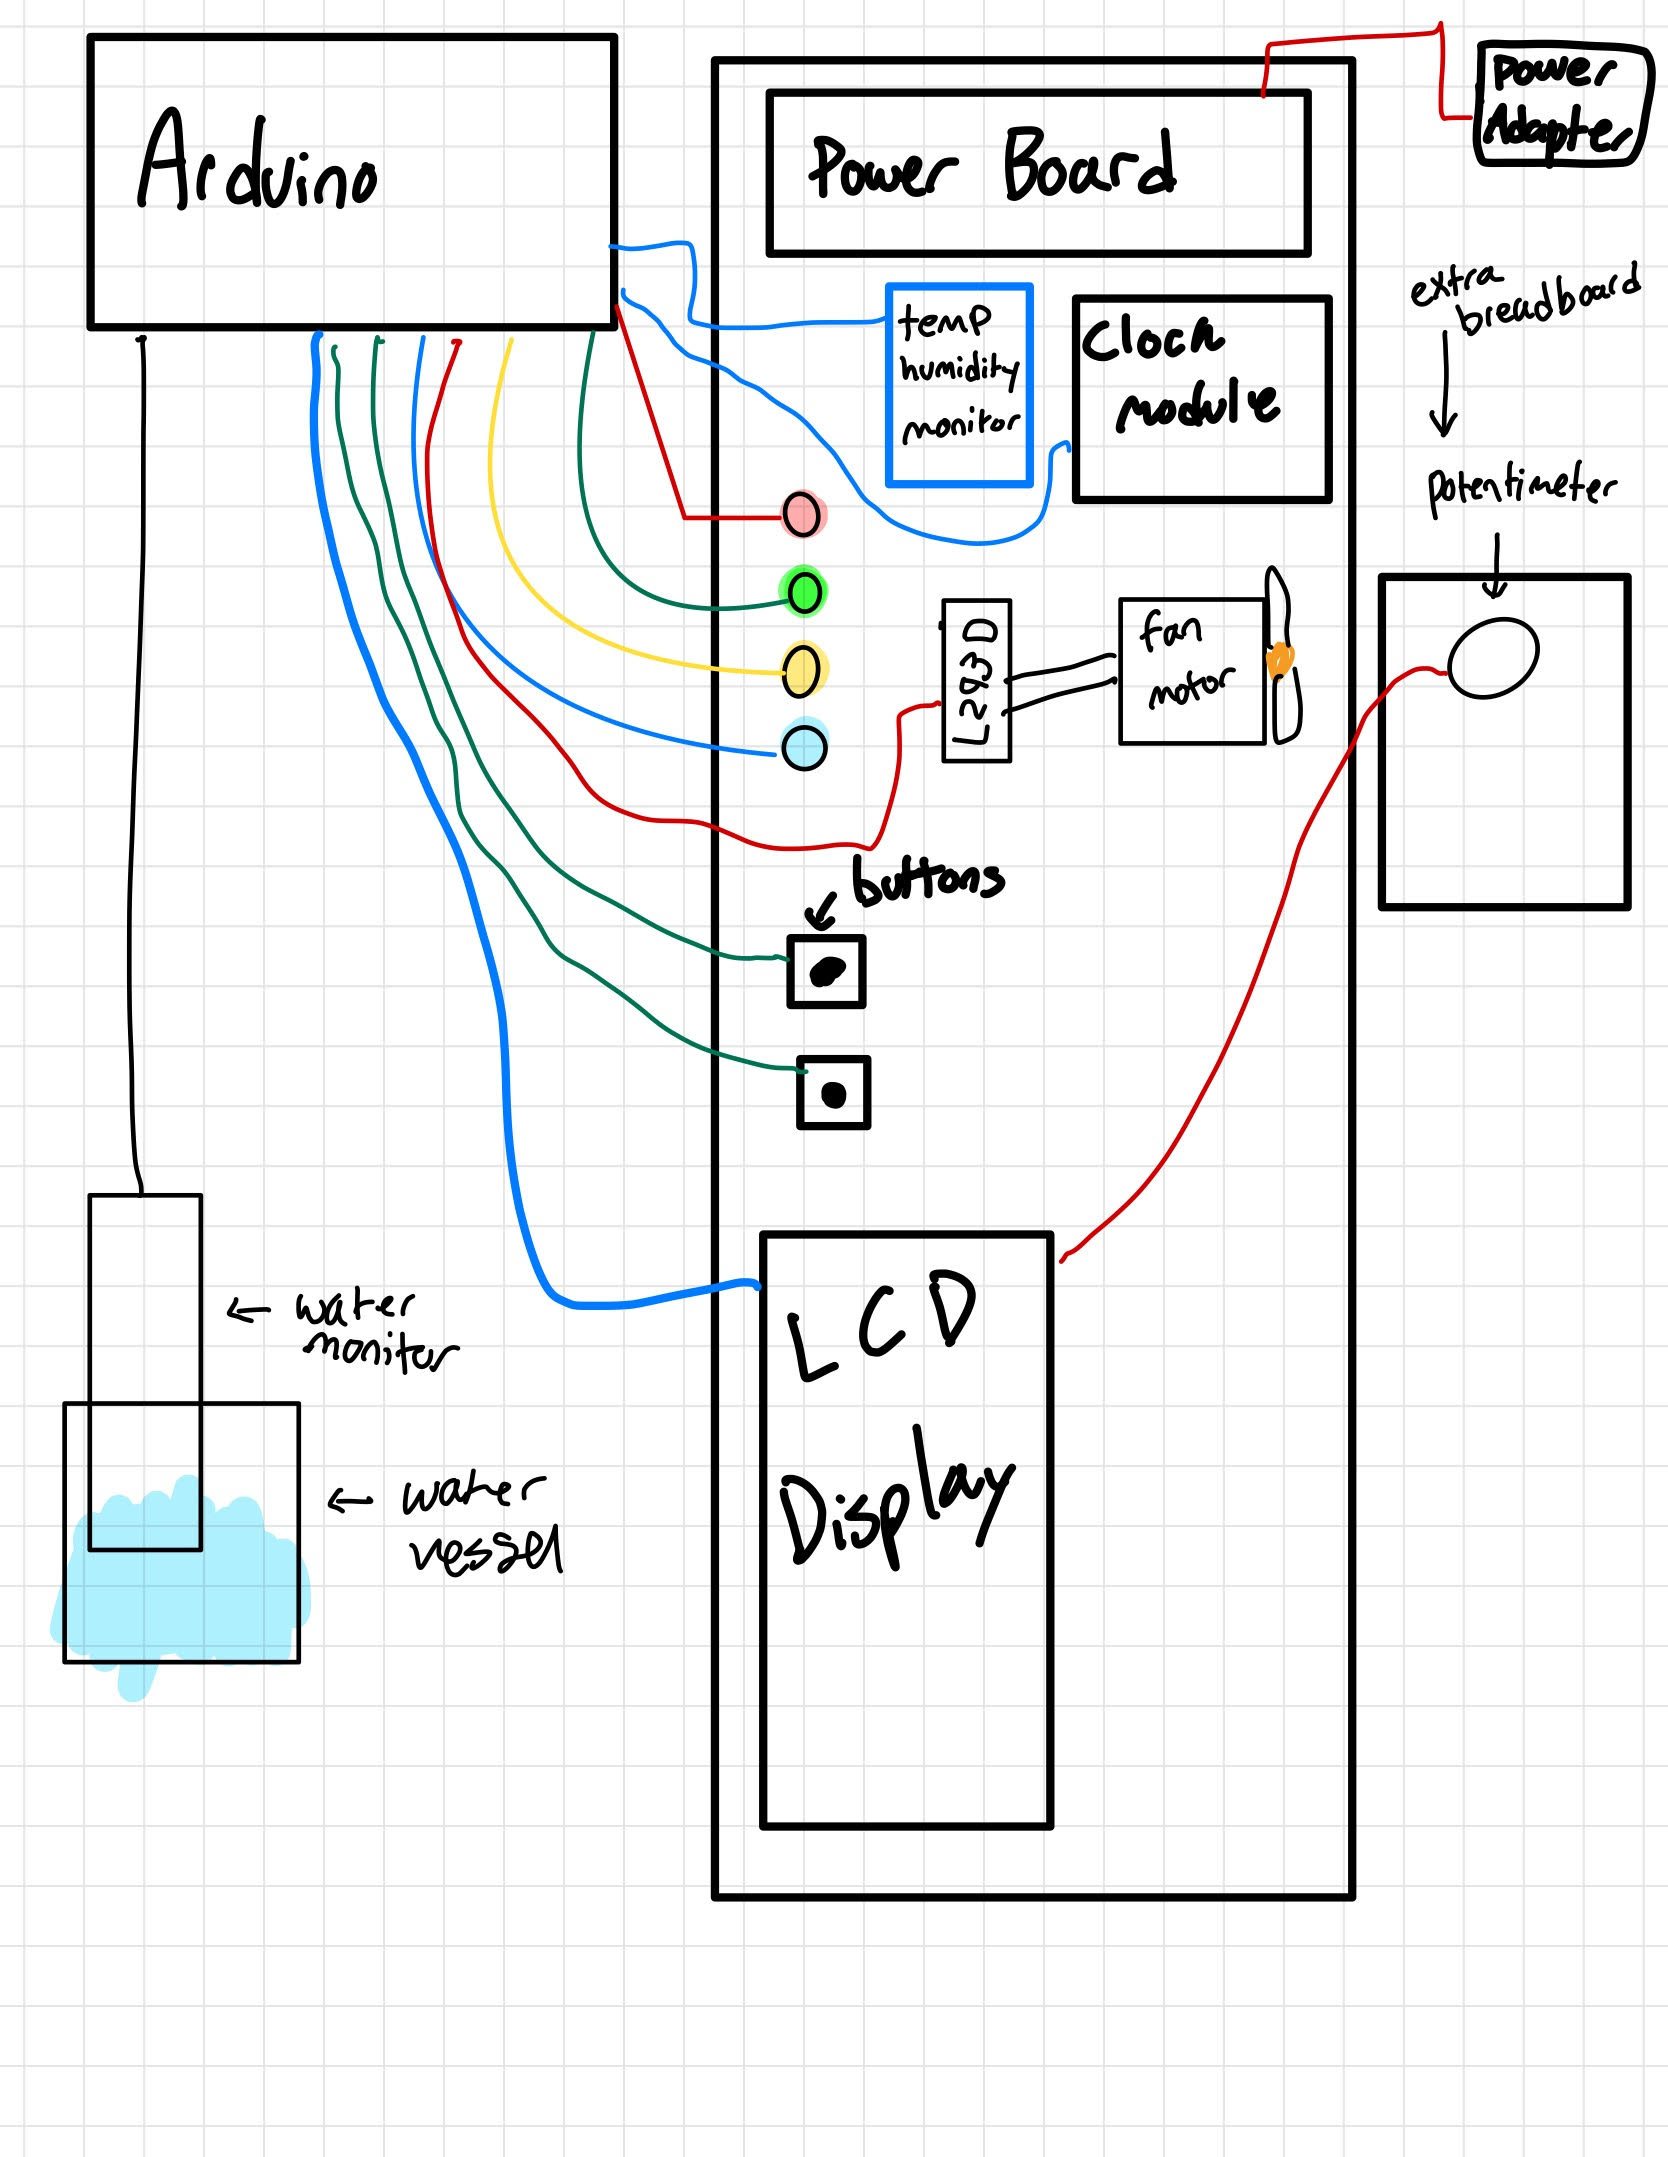 Arduino
Power Board
Power
Adapter
temp
humidity
monitor
Clock
module
extra
breadboard
potentimeter
L293D
fan
motor
buttons
water
monitor
water
vessel
LCD
Display